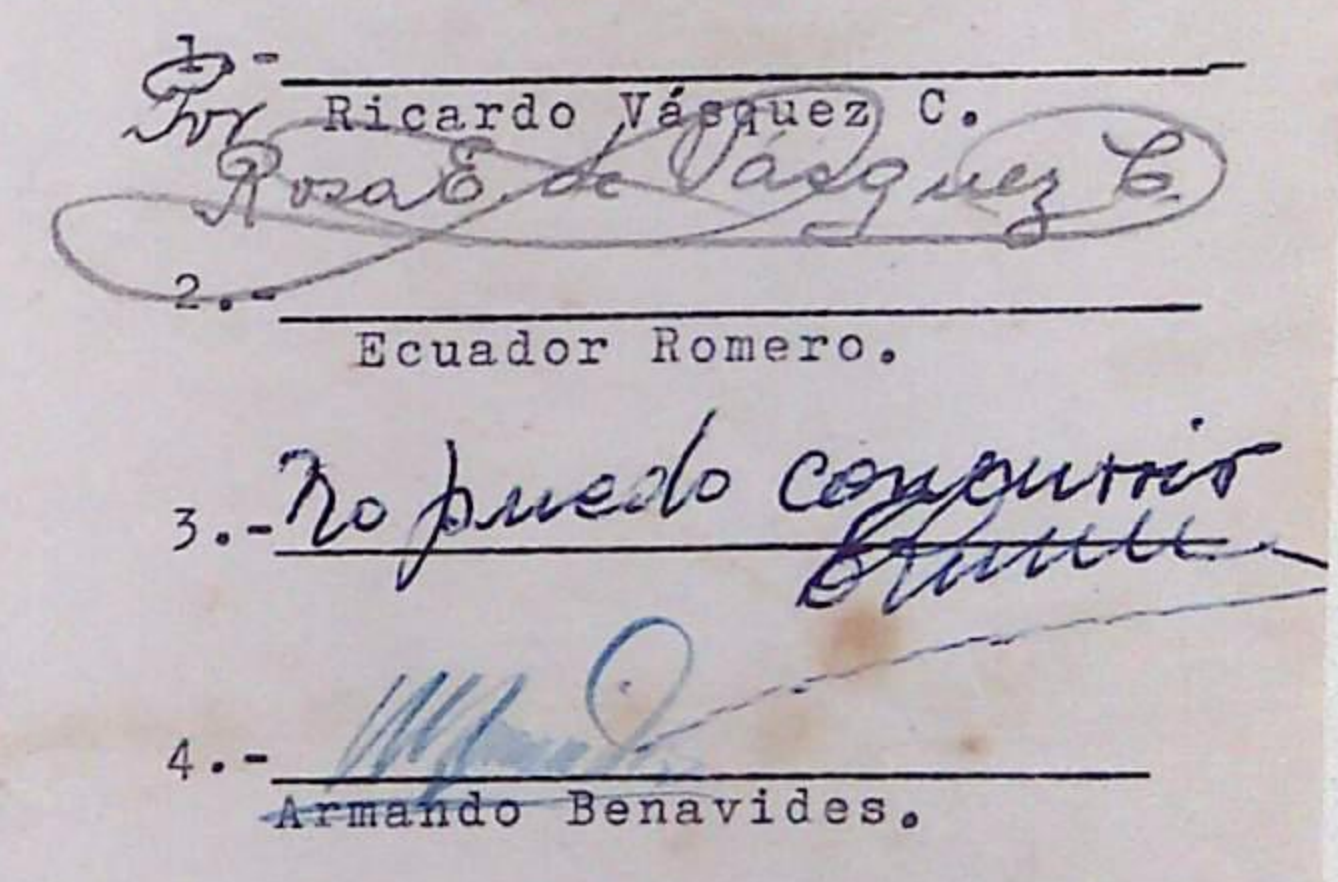 1.-
Por Ricardo Vásquez C.
Rosa E. de Vásquez C.
2.-
Ecuador Romero.
3.- No puedo concurrir
4.-
Armando Benavides.